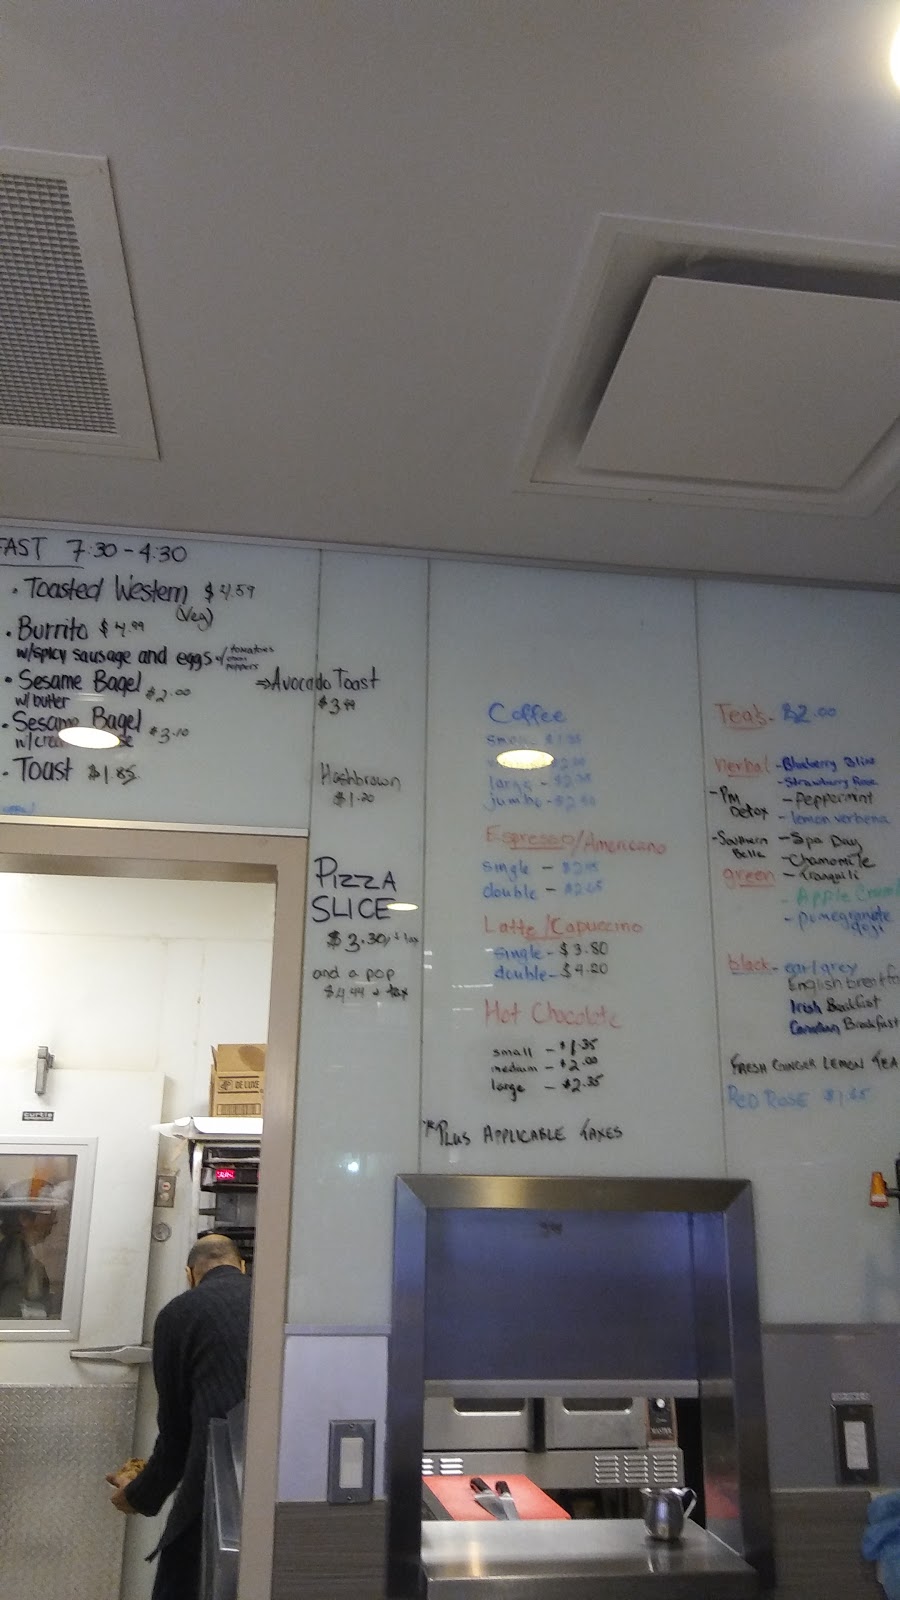 FAST 7:30-4:30
• Toasted Western $4.59
(Veg)
• Burrito $4.99
w/spicy sausage and eggs w/ tomatoes
peppers
• Sesame Bagel $2.00
w/butter
• Sesame Bagel $3.10
• Toast $1.85
⇒Avocado Toast
$3.99
Hashbrown
$1.20
PIZZA
SLICE
$3.30 + tax
and a pop
$4.44 + tax
Coffee
large -
jumbo -
Espresso/Americano
single -
double -
Latte/Capuccino
single - $3.80
double - $4.20
Hot Chocolate
small - $1.35
medium - $2.00
large - $2.35
*PLUS APPLICABLE TAXES
Tea's - $2.00
herbal - Blueberry Bliss
- Strawberry Rose
- PM Detox
- Peppermint
- lemon verbena
- Southern Belle
- Spa Day
- Chamomile
green - Tranquili
- Apple
- Pomegranate goji
black - earl grey
English
Irish Breakfast
Canadian Breakfast
FRESH GINGER LEMON TEA
RED ROSE $1.65
DE LUXE